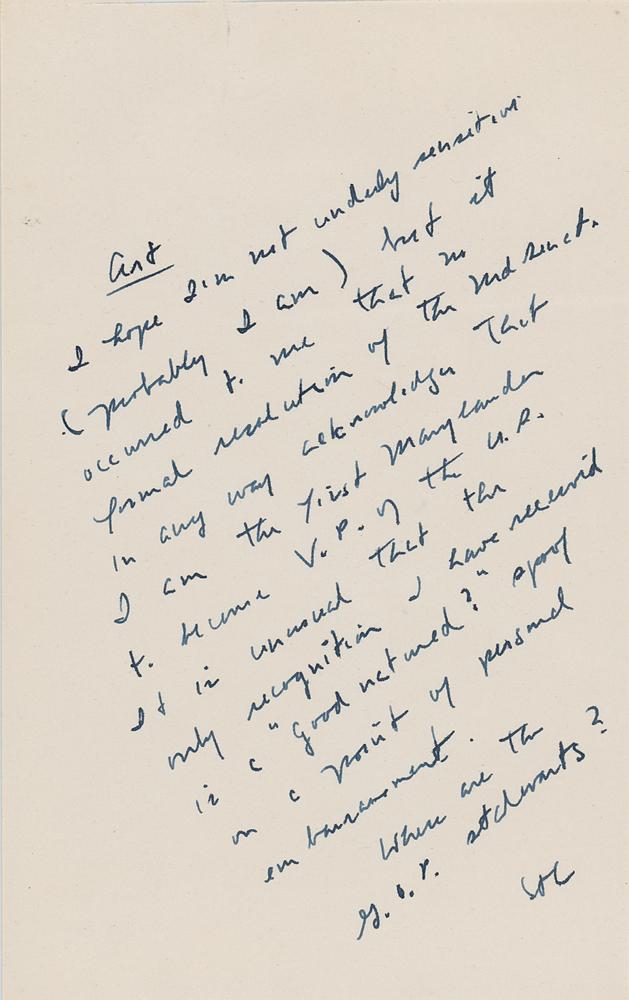 Art
I hope I'm not unduly sensitive
(probably I am) but it
occurred to me that no
formal resolution of the Md Senate
in any way acknowledges that
I am the first Marylander
to become V.P. of the U.S.
It is unusual that the
only recognition I have received
is a "good natured?" spoof
on a point of personal
embarrassment. Where are the
G.O.P. stalwarts?